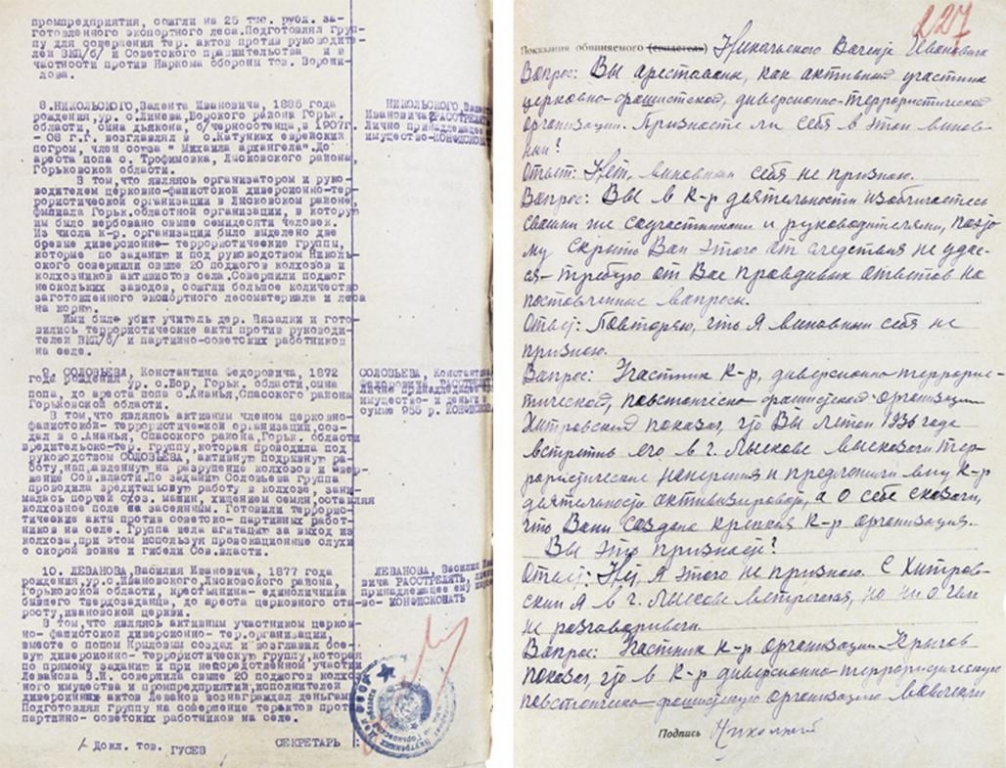 промпредприятия, сожгли на 25 тыс. рубл. за-
готовленного экспортного леса.Подготовлял груп-
пу для совершения тер. актов против руководите-
лей ВКП/б/ и Советского правительства и в
частности против Наркома обороны тов. Вороши-
лова.
8.НИКОЛЬСКОГО, Валента Ивановича, 1886 года
рождения,ур. с.Линева,Борского района Горьк.
области, сына дьякона, б/черносотенца,в 1907г.
- 08 г.г. возглавлял в с.Катунках еврейский
погром, член союза " Михаила архангела".До
ареста попа с. Трофимовка, Лысковского района,
Горьковской области.
В том,что являясь организатором и руко-
водителем церковно-фашистской диверсионно-тер-
рористической организации в Лысковском районе,
филиала Горьк.областной организации, в которую
им было вербовано свыше семидесяти человек.
Из числа к-р. организации было выделено две
боевые диверсионно- террористические группы,
которые по заданию и под руководством Николь-
ского совершили свыше 20 поджого колхозов и
колхозников активистов села.Совершили поджог
нескольких заводов, сожгли большое количество
заготовленного экспортного лесоматериала и леса
на корню.
Ими был убит учитель дер. Вязалки и гото-
вились террористические акты против руководи-
телей ВКП/б/ и партийно-советских работников
на селе.
НИКОЛЬСКОГО,
Ивановича РАССТРЕЛЯТЬ
Лично принадлежащее
имущество-КОНФИСКОВАТЬ
9. СОЛОВЬЕВА, Константина Федоровича, 1872
года рождения ур. с.Бор, Горьк. области,сына
попа, до ареста попа с.Ананья,Спасского района
Горьковской области.
В том,что являясь активным членом церковно-
фашистской- террористической организации,соз-
дал в с.Ананья, Спасского района,Горьк. области
вредительско-тер. группу,которая проводила под
руководством СОЛОВЬЕВА, активную подрывную ра-
боту,направленную на разрушение колхозов и свер-
жение Сов.власти.По заданию Соловьева группа
проводила вредительскую работу в колхозе, зани-
малась порчей схоз. машин, хищением семян,оставляя
колхозное поле на засеянным. Готовили террорис-
тические акты против советско- партийных работ-
ников на селе. Группа вела агитацию за выход из
колхоза,при этом используя провокационные слухи
о скорой войне и гибели Сов.власти.
СОЛОВЬЕВА, Константина
Федоровича,
имущество- и деньги в
сумме 955 р.
10. ЛЕВАНОВА,Василия Ивановича, 1877 года
рождения,ур.с.Ивановского,Лысковского района,
Горьковской области, крестьянина- единоличника
бывшего твердозаданца, до ареста церковного ста-
росту,ивановской церкви.
В том,что являясь активным участником церков-
но- фашистской диверсионно- тер.организации,
вместе с попом Крыловым создал и возглавил бое-
вую диверсионно- террористическую группу,которая
по прямому заданию и при непосредственном участии
Леванова В.И. совершила свыше 20 поджого колхоз-
ного имущества и промпредприятий,исполнителей
диверсионных актов Леванов вознаграждал деньгами
Подготовлял группу на совершение терактов против
партийно- советских работников на селе.
ЛЕВАНОВА, Василия Ива-
вича РАССТРЕЛЯТЬ,
принадлежащее ему
во- КОНФИСКОВАТЬ
Докл. тов. ГУСЕВ
СЕКРЕТАРЬ
227
Показания обвиняемого (свидетеля) Никольского Ивановича
Вопрос: Вы арестованы, как активный участник
церковно-фашистской, диверсионно-террористической
организации. Признаете ли себя в этом винов-
ным?
Ответ: Нет, виновным себя не признаю.
Вопрос: Вы в к-р деятельности изобличаетесь
своими же соучастниками и руководителями, поэто
му скрыть Вам этого от следствия не удас-
ся- требую от Вас правдивых ответов на
поставленные вопросы.
Ответ: Повторяю, что я виновным себя не
признаю.
Вопрос: Участник к-р, диверсионно-террорис-
тической, повстанческо фашистской организации
Хитровский показал, что Вы летом 1936 года
встретив его в г. Лыскове высказали тер-
рористические намерения и предложили ему к-р
деятельность активизировать, а о себе сказали,
что Вами создана крепкая к-р организация.
Вы это признаете?
Ответ: Нет. Я этого не признаю. С Хитров-
ским я в г. Лыскове встречался, но ни о чем
не разговаривали.
Вопрос: Участник к-р организации Крылов
показал, что в к-р диверсионно-террористическую
повстанческо-фашистскую организацию вовлечен
Подпись Никольский